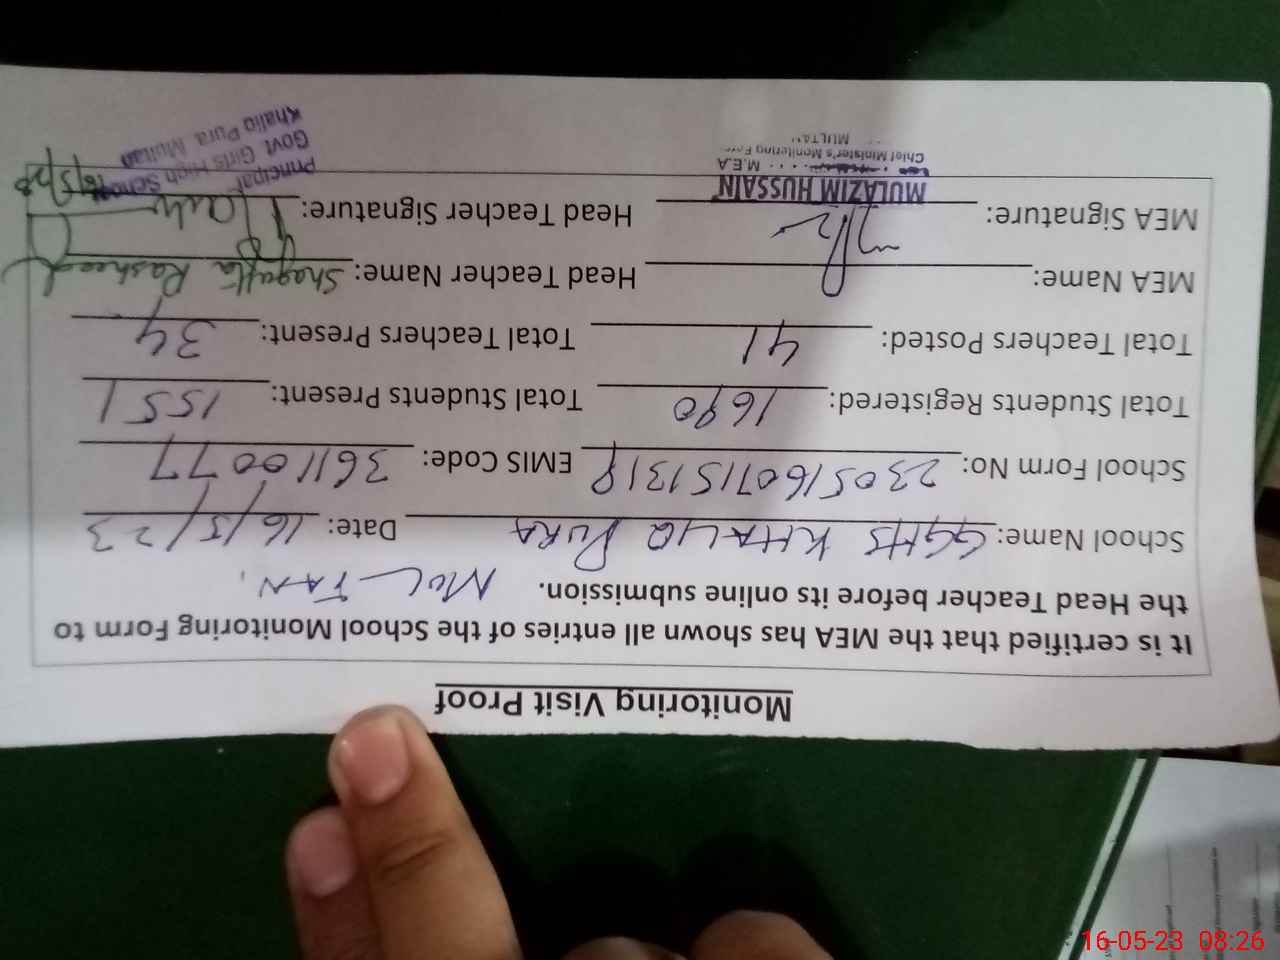 Monitoring Visit Proof
It is certified that the MEA has shown all entries of the School Monitoring Form to
the Head Teacher before its online submission. MULTAN.
School Name: GGHS KHALIQ PURA Date: 16/5/23
School Form No: EMIS Code: 36110077
Total Students Registered: 1690 Total Students Present: 1551
Total Teachers Posted: 41 Total Teachers Present: 34
MEA Name: Head Teacher Name: Shagufta Rasheed
MEA Signature: Head Teacher Signature: 16/5/23
MULAZIM HUSSAIN
M.E.A
Chief Minister's Monitoring Force
MULTAN
Principal
Govt Girls High School
Khaliq Pura Multan
16-05-23 08:26